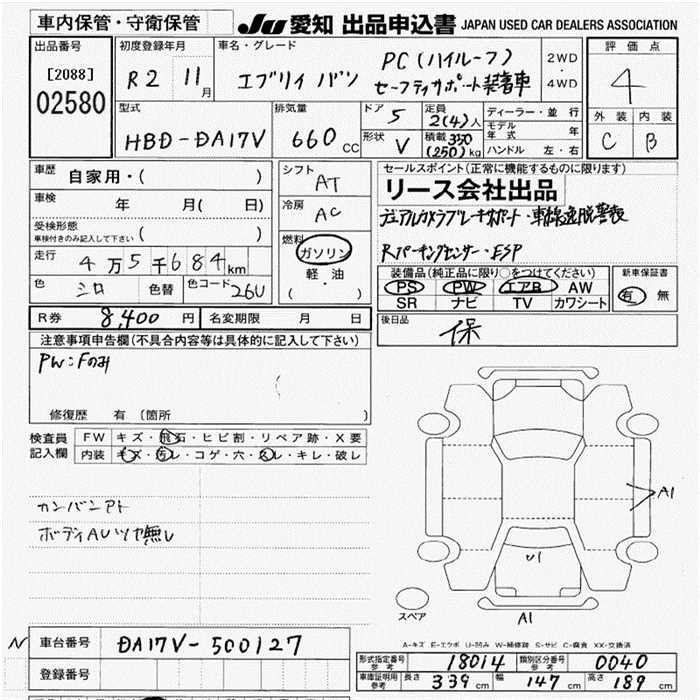 車内保管・守衛保管
JU 愛知 出品申込書 JAPAN USED CAR DEALERS ASSOCIATION
出品番号
[2088]
02580
初度登録年月
R2 11月
車名・グレード
エブリィ バン
PC(ハイルーフ)
セーフティサポート装着車
2WD
・
4WD
評価点
4
外装 内装
C B
型式
HBD-DA17V
排気量
660cc
ドア 5
形状 V
定員
2(4)人
積載 350
(250)kg
ディーラー・並行
モデル年式 年
ハンドル 左・右
車歴 自家用・( )
車検 年 月( 日)
受検形態
車検付きのみ記入して下さい ( )
走行 4万5千684km
色 シロ 色替 色コード 26U
シフト AT
冷房 AC
燃料
ガソリン
軽・油
( ・ )
セールスポイント(正常に機能するものに限ります)
リース会社出品
デュアルカメラブレーキサポート・車線逸脱警報
Rパーキングセンサー・ESP
装備品(純正品に限り○をつけてください)
PS PW エアB AW
SR ナビ TV カワシート
新車保証書
有・無
R券 8,400円 名変期限 月 日
後日品
保
注意事項申告欄(不具合内容等は具体的に記入して下さい)
PW:Fのみ
修復歴 有(箇所 )
検査員記入欄
FW キズ・飛石・ヒビ割・リペア跡・X要
内装 キズ・汚レ・コゲ・穴・スレ・キレ・破レ
カンバンアト
ボディAUツヤ無し
A1
U1
A1
スペア
N 車台番号 DA17V-500127
登録番号
A-キズ E-エクボ U-凹み W-補修跡 S-サビ C-腐食 XX-交換済
形式指定番号参考 18014 類別区分番号参考 0040
車庫証明用参考 長さ 339cm 幅 147cm 高さ 189cm